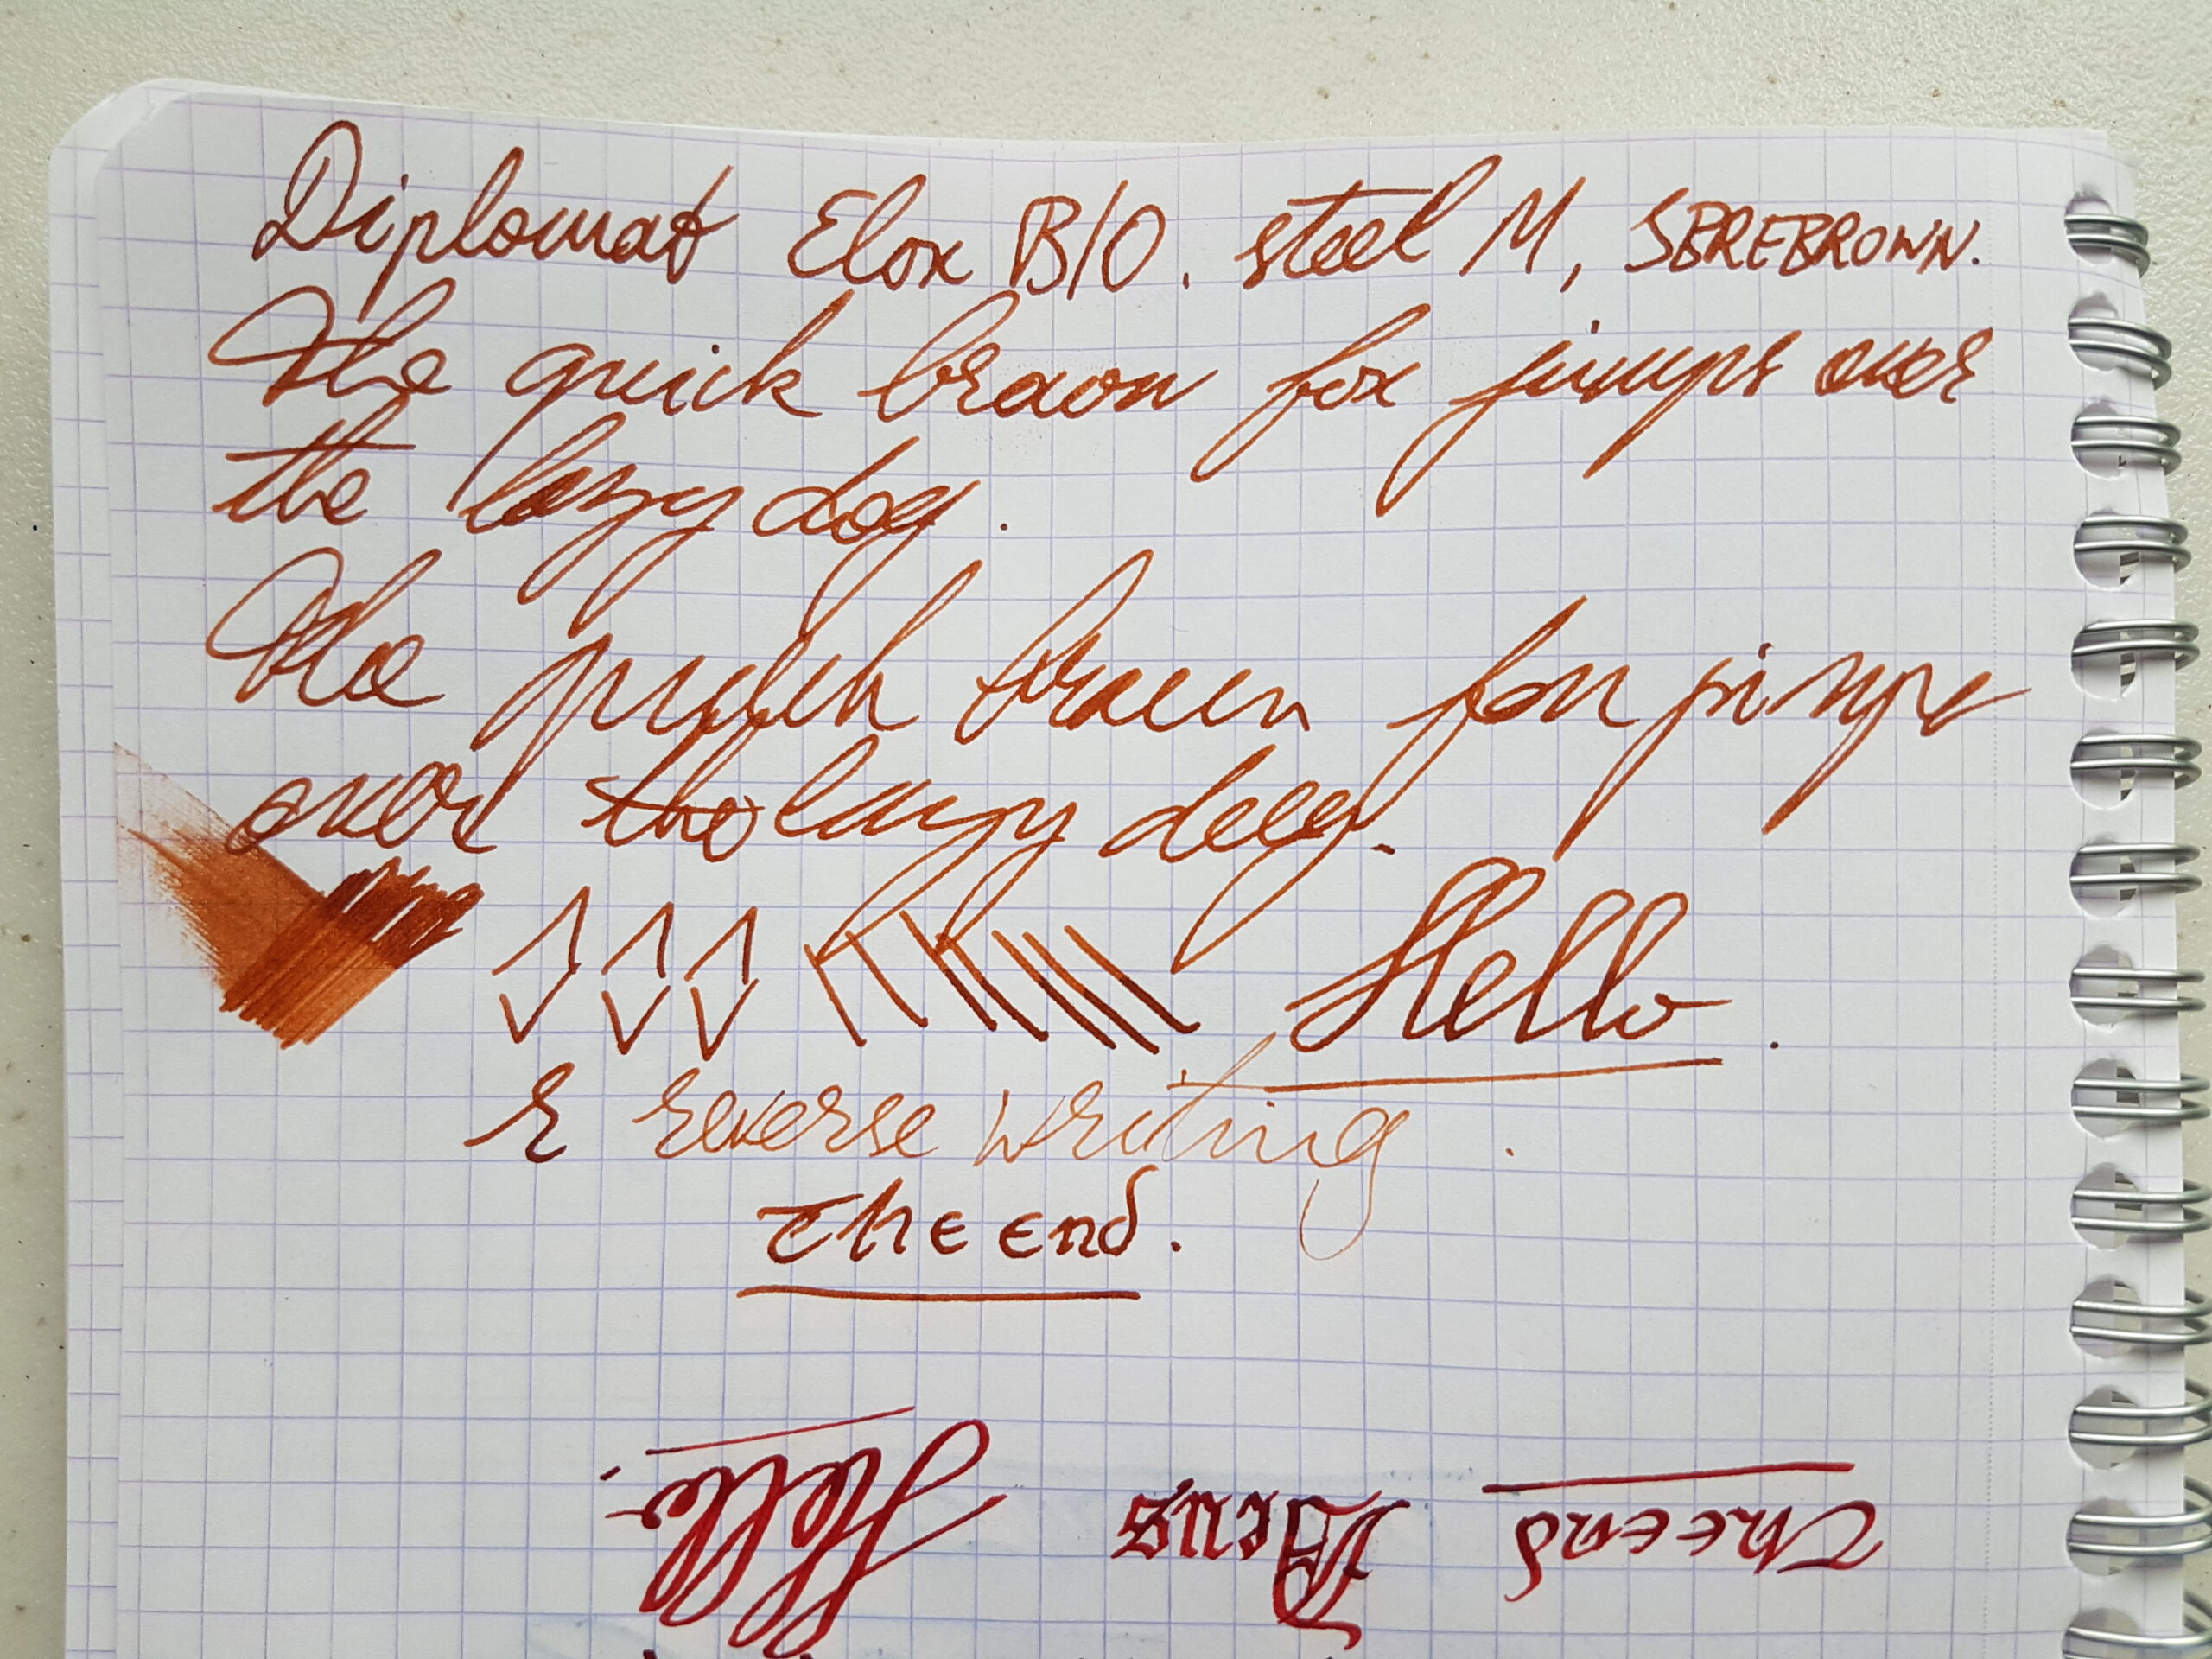 Diplomat Elox B/O. steel M, SBREBROWN.
The quick brown fox jumps over
the lazy dog.
The quick brown fox jumps
over the lazy dog.
Hello.
& reverse writing.
The end.
The end
Hello.